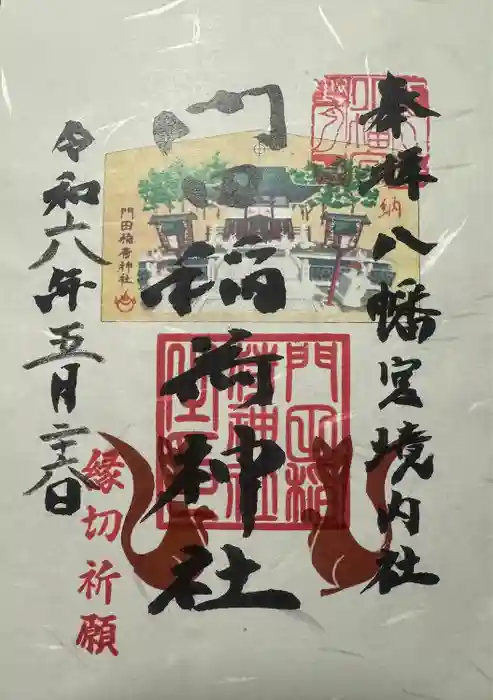 奉拝八幡宮境内社
納
門田稲荷神社
門田稲荷神社
令和六年五月二十八日
縁切祈願